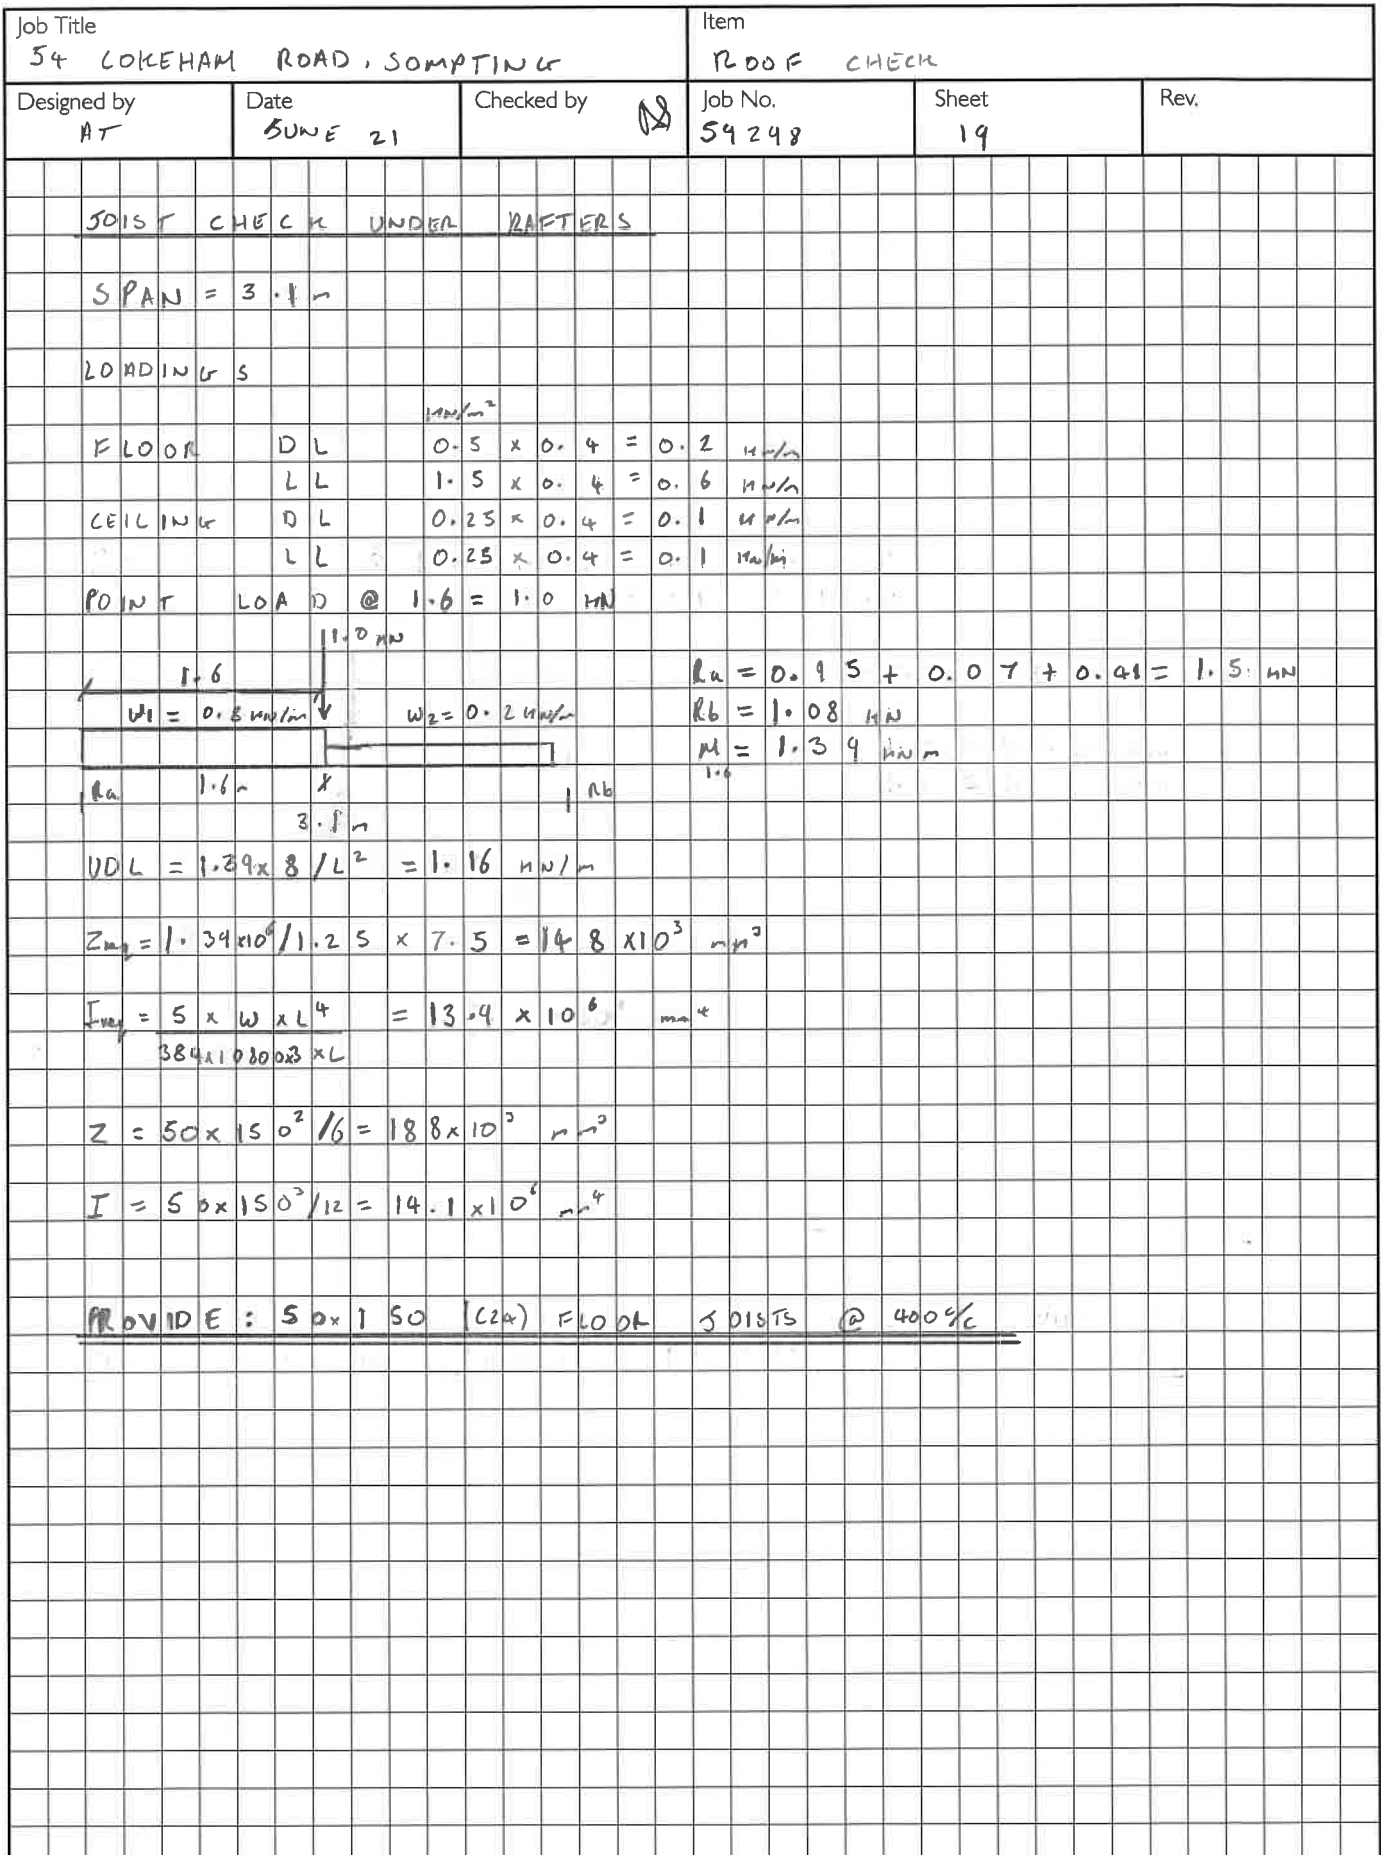 Job Title
54 COKEHAM ROAD, SOMPTING
Item
ROOF CHECK
Designed by
AT
Date
JUNE 21
Checked by
Job No.
59298
Sheet
19
Rev.
JOIST CHECK UNDER RAFTERS
SPAN = 3.1 m
LOADINGS
kN/m²
FLOOR DL 0.5 x 0.4 = 0.2 kN/m
LL 1.5 x 0.4 = 0.6 kN/m
CEILING DL 0.25 x 0.4 = 0.1 kN/m
LL 0.25 x 0.4 = 0.1 kN/m
POINT LOAD @ 1.6 = 1.0 kN
1.0 kN
1.6
Ra = 0.95 + 0.07 + 0.48 = 1.5 kN
W1 = 0.8 kN/m W2 = 0.2 kN/m
Rb = 1.08 kN
M = 1.39 kNm
1.6
Ra 1.6m x Rb
3.1m
UDL = 1.39 x 8 / L² = 1.16 kN/m
Zreq = 1.39x10⁶/1.25 x 7.5 = 148 x10³ mm³
Ireq = 5 x W x L⁴ = 13.9 x 10⁶ mm⁴
384x10800x3 x L
Z = 50 x 150²/6 = 188x10³ mm³
I = 50x150³/12 = 14.1 x10⁶ mm⁴
PROVIDE : 50x150 (C24) FLOOR JOISTS @ 400 c/c